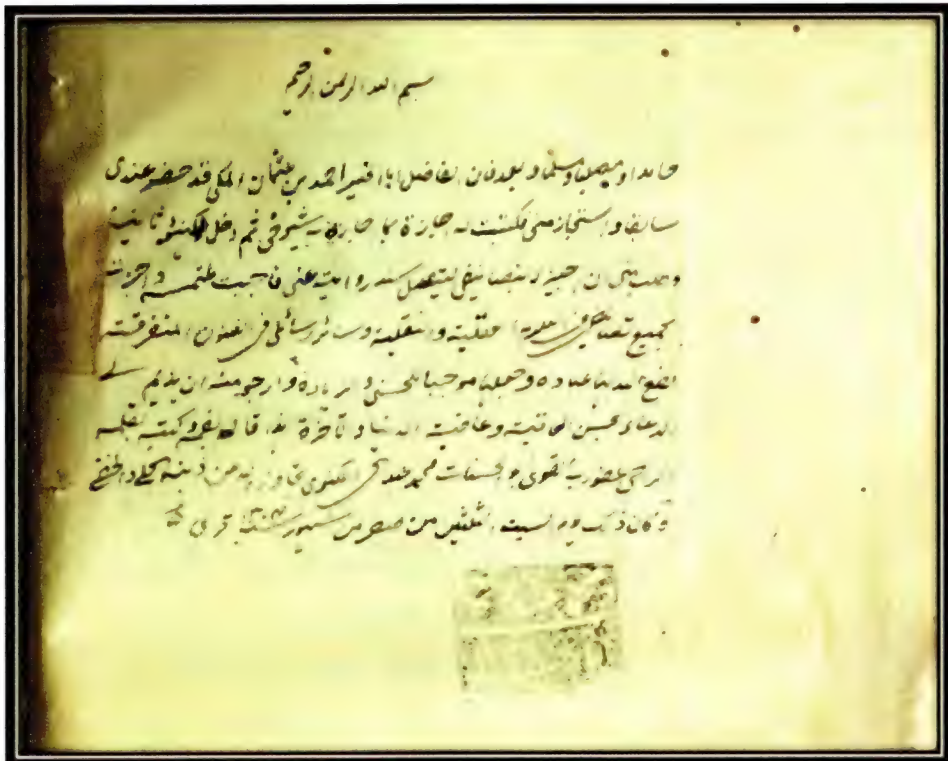 بسم الله الرحمن الرحيم
حامدا ومصليا ومسلما وبعد فان الفاضل ابا الخير احمد بن عثمان المكي قد حضر عندي
سابقا واستجاز مني فكتبت له اجازة بما اجازني به شيوخي ثم دخل لكنؤ ثانيا
وطلب مني ان اجيزه بتصانيفي ليتصل سند روايته عني فاجبت ملتمسه واجزت
بجميع تصانيفي في العلوم العقلية والنقلية وسائر رسائلي في الفنون المتفرقة
نفع الله بها عباده وجعلها موجبا للحسنى والزيادة وارجو منه ان يديم لي
الدعاء بحسن العاقبة وعافية الدنيا والآخرة هذا قاله بفمه وكتبه بقلمه
الراجي عفو ربه القوي ابو الحسنات محمد عبد الحي اللكنوي تجاوز الله عن ذنبه الجلي والخفي
وكان ذلك يوم السبت الثلثين من صفر من شهور سنة